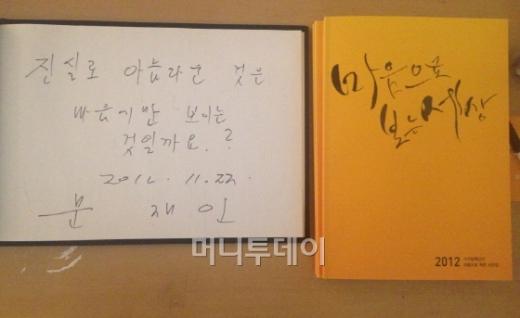 진실로 아름다운 것은
마음에만 보이는
것일까요.?
2012. 11. 22.
문 재 인
마음으로
보는 세상
2012
머니투데이